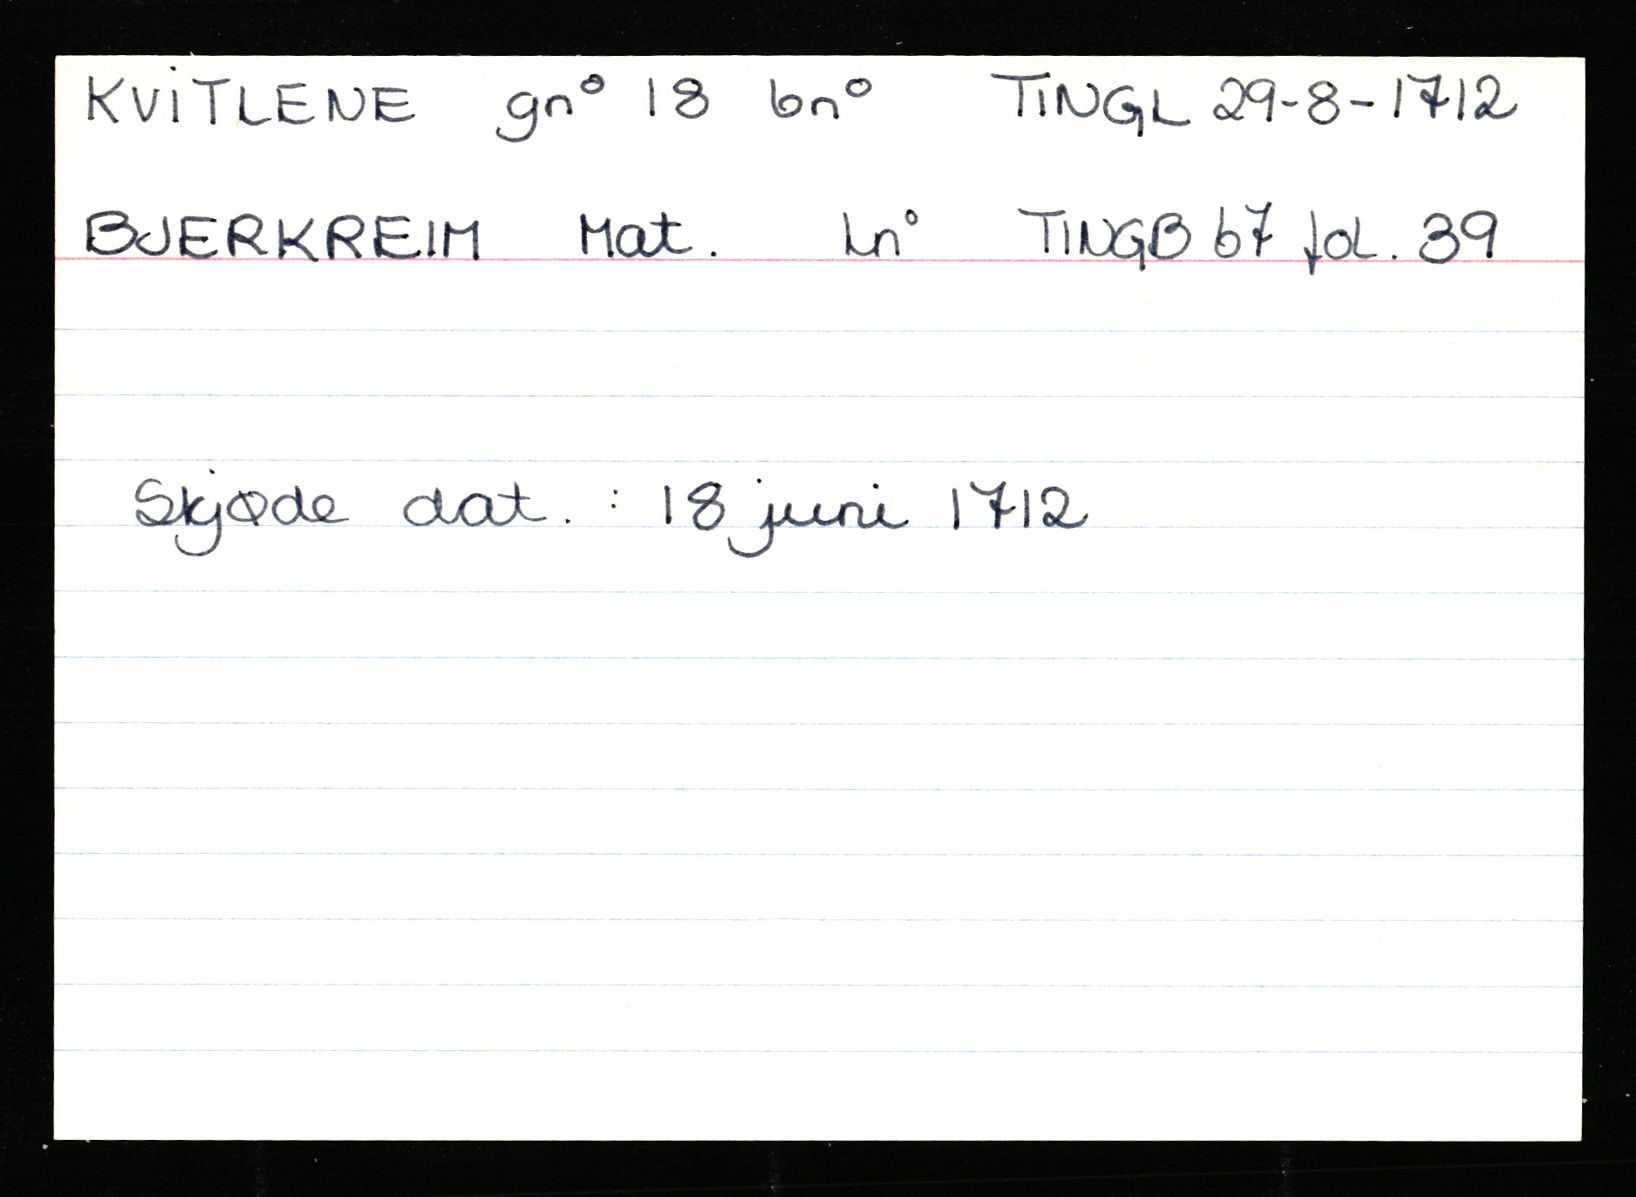 KViTLENE gnº 18 bnº TiNGL 29-8-1712
BJERKREIM Mat. Lnº TINGB 67 fol. 39
Skjøde dat. : 18 juni 1712